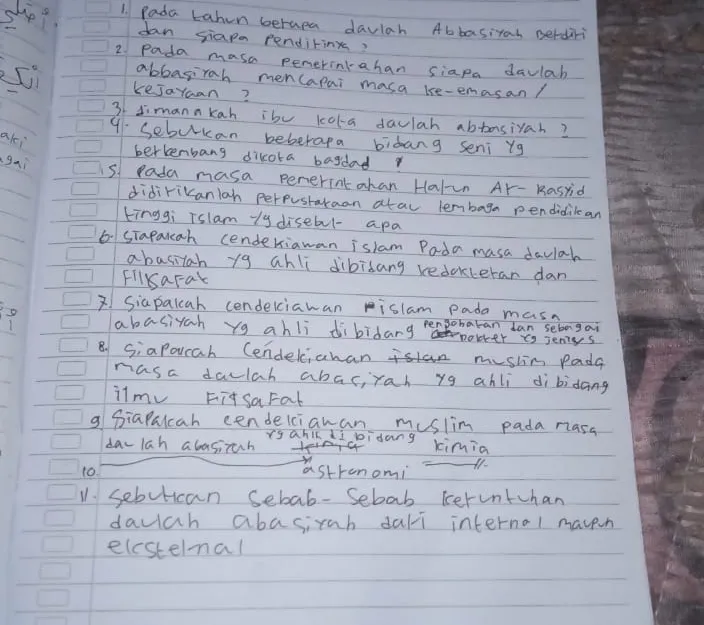 1. Pada tahun berapa daulah Abbasiyah berdiri
dan siapa Pendirinya?
2. Pada masa Pemerintahan siapa daulah
abbasiyah mencapai masa ke-emasan/
kejayaan?
3. dimanakah ibu kota daulah abbasiyah?
4. Sebutkan beberapa bidang seni yg
berkembang dikota bagdad?
5. Pada masa Pemerintahan Harun Ar-Rasyid
didirikanlah Perpustakaan atau lembaga pendidikan
tinggi islam yg disebut apa
6. Siapakah cendekiawan islam Pada masa daulah
abasiyah yg ahli dibidang kedokteran dan
Filsafat
7. Siapakah cendekiawan islam pada masa
abasiyah yg ahli dibidang Pengobatan dan sebagai
dokter yg jenius
8. Siapakah Cendekiawan islam muslim Pada
masa daulah abasiyah yg ahli dibidang
ilmu Fitsafat
9 Siapakah cendekiawan muslim pada masa
daulah abasiyah yg ahli di bidang kimia
10. astronomi
11. Sebutkan Sebab-Sebab keruntuhan
daulah abasiyah dari internal maupun
eksternal